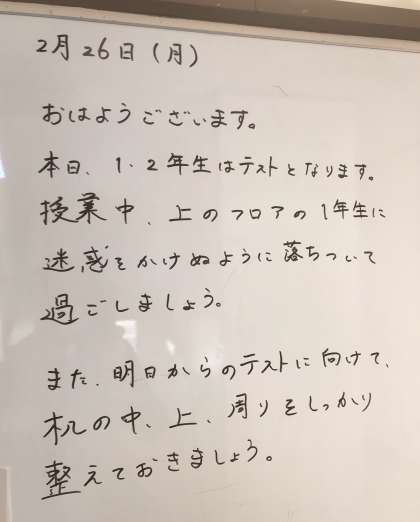 2月26日(月)
おはようございます。
本日、1・2年生はテストとなります。
授業中、上のフロアの1年生に
迷惑をかけぬように落ちついて
過ごしましょう。
また、明日からのテストに向けて、
机の中、上、周りをしっかり
整えておきましょう。